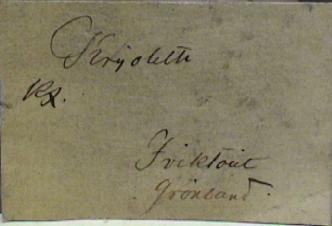 Kryolith
kx.
Iviktout
Grönland.